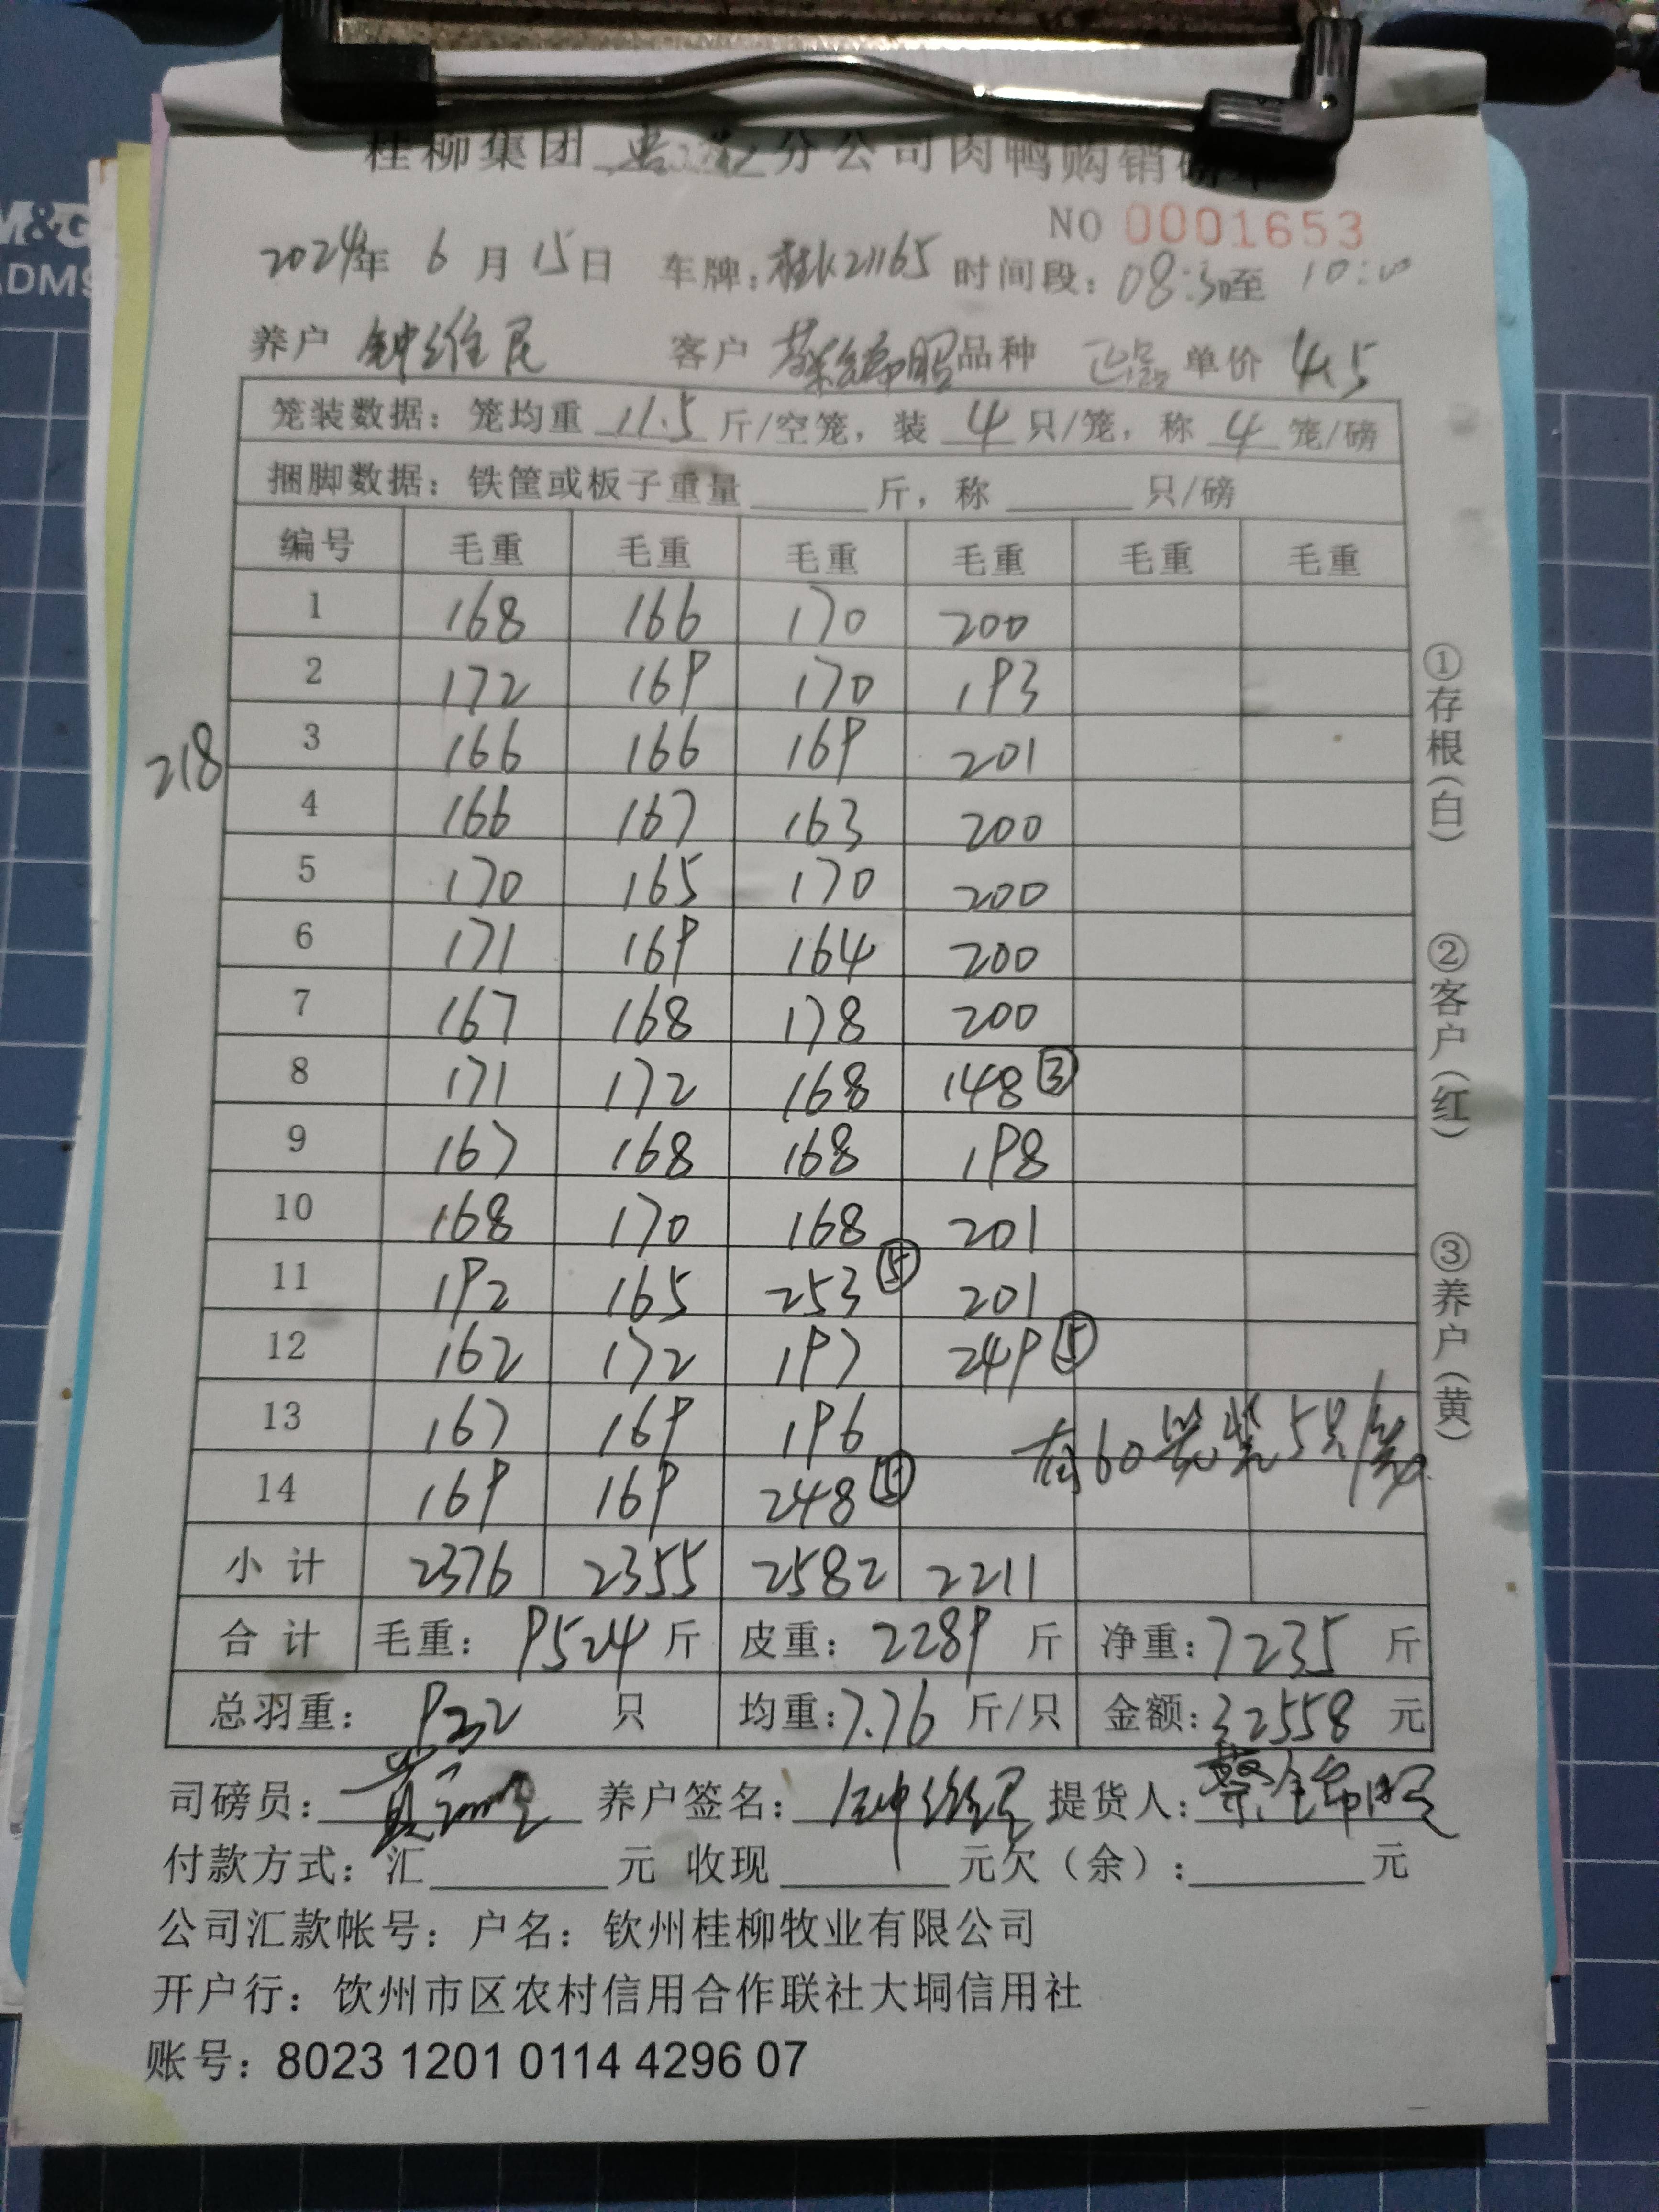 M&G
ADM9
桂柳集团 分公司肉鸭购销磅单
NO 0001653
2024年 6 月 15日 车牌：桂K21165 时间段：08:30至 10:20
养户 钟维民 客户 蔡锦昭 品种 正品 单价 4.5
笼装数据：笼均重 11.5 斤/空笼，装 4 只/笼，称 4 笼/磅
捆脚数据：铁筐或板子重量 斤，称 只/磅
编号 毛重 毛重 毛重 毛重 毛重 毛重
1 168 166 170 200
2 172 169 170 193
218
3 166 166 169 201
4 166 167 163 200
5 170 165 170 200
6 171 169 164 200
7 167 168 178 200
8 171 172 168 148 ③
9 167 168 168 198
10 168 170 168 201
11 192 165 253 ⑤ 201
12 162 172 197 249 ⑤
13 167 169 196
有60笼装5只/笼
14 169 169 248 ⑤
小计 2376 2355 2582 2211
合计 毛重：9524 斤 皮重：2289 斤 净重：7235 斤
总羽重：932 只 均重：7.76 斤/只 金额：32558 元
司磅员： 养户签名：钟维民 提货人：蔡锦昭
付款方式：汇 元 收现 元欠（余）： 元
公司汇款帐号：户名：钦州桂柳牧业有限公司
开户行：钦州市区农村信用合作联社大垌信用社
账号：8023 1201 0114 4296 07
①存根（白）
②客户（红）
③养户（黄）